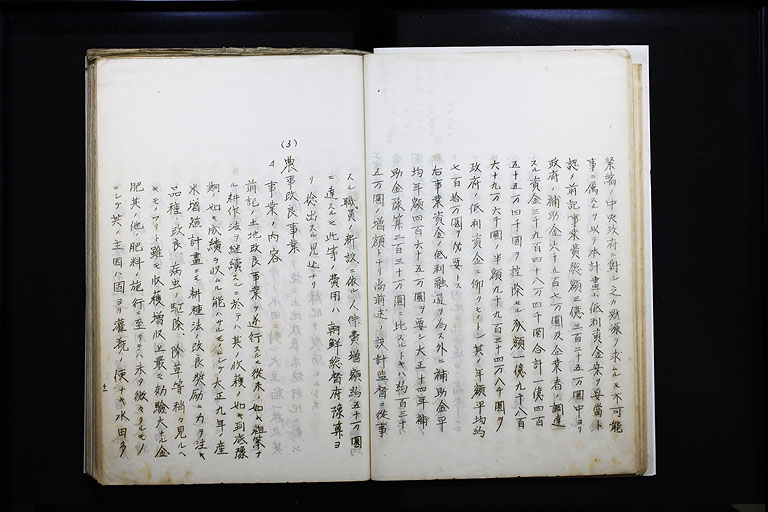 業端ノ中央政府ニ對シ之カ斡旋ヲ求ムルモ不可能
事ニ属スルヲ以テ本計畫ハ低利資金案ヲ妥當ト
認メ前記事業費總額三億三百二十五万圓中ヨリ
政府ノ補助金六千五百七万圓及企業者ノ調達
スル資金三千九百四十八万四千圓合計一億四百
五十五万四千圓ヲ控除セル残額一億九千八百
六十九万六千圓ノ半額九千九百三十四万八千圓ヲ
政府ノ低利資金ニ仰クモトシ其ノ年額平均約
七百拾万圓ヲ必要トス
右事業資金ノ低利融通ヲ為ス外ニ補助金平
均年額四百六十五万圓ヲ要シ大正十四年補
助金豫算三百三十万圓ニ比スルトキハ約百三十
五万圓ノ増額トナリ尚前述ノ設計監督ニ従事
スル職員ノ新設ニ依ル人件費増額約五十万圓
ニ達スルモ此等ノ費用ハ朝鮮総督府豫算ヨ
リ捻出スル見込ナリ
(3) 農事改良事業
イ 事業ノ内容
前記ノ土地改良事業ヲ遂行スルモ従来ノ如キ粗笨ナ
ル耕作法ヲ継續スルニ於テハ其ノ収穫ノ如キ到底豫
期ノ如キ成績ヲ収ムル能ハサルモノニシテ大正九年ノ産
米増殖計畫ニモ耕種法改良奨励ニ力ヲ注キ
品種ノ改良、病虫ノ駆除、除草等稍々見ルヘ
キモノアリト雖モ収穫増収上最モ効驗大ナル金
肥其ノ他肥料ノ施行ニ至リテハ未タ微々タルモノ
ニシテ其ノ主因ハ固ヨリ灌漑ノ便ナキ水田多